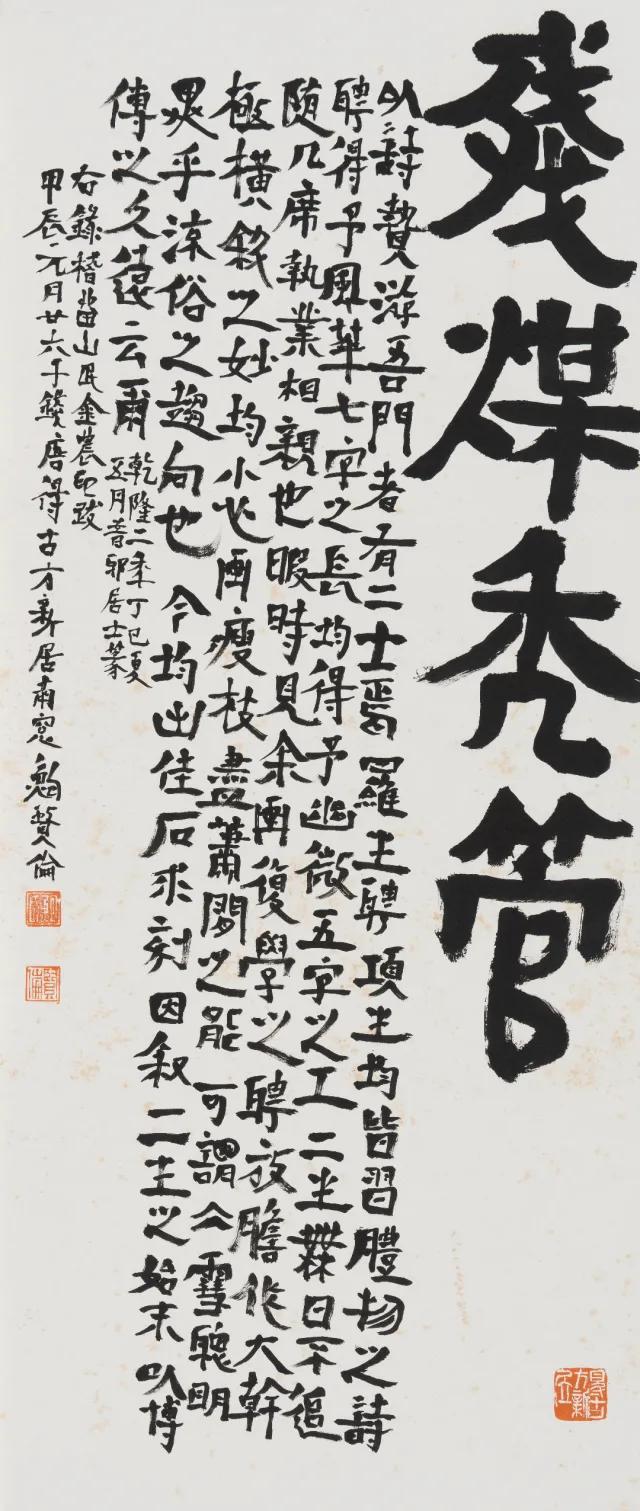 殘煤禿管
以詩贄游吾門者有二士焉羅生聘項生均皆習體物之詩
聘得予風華七字之長均得予幽微五字之工二生無日不追
隨几席執業相親也暇時見余畫復學之聘放膽作大幹
極橫斜之妙均小心畫瘦枝盡蕭閒之能可謂仌雪聰明
異乎流俗之趨向也今均出佳石求刻因叙二生之始末以博
傳之久遠云爾
乾隆二年丁巳夏
五月昔邪居士篆
右錄稽畱山民金農印跋
甲辰元月廿六于錢唐得古方新居南窗鮑賢倫